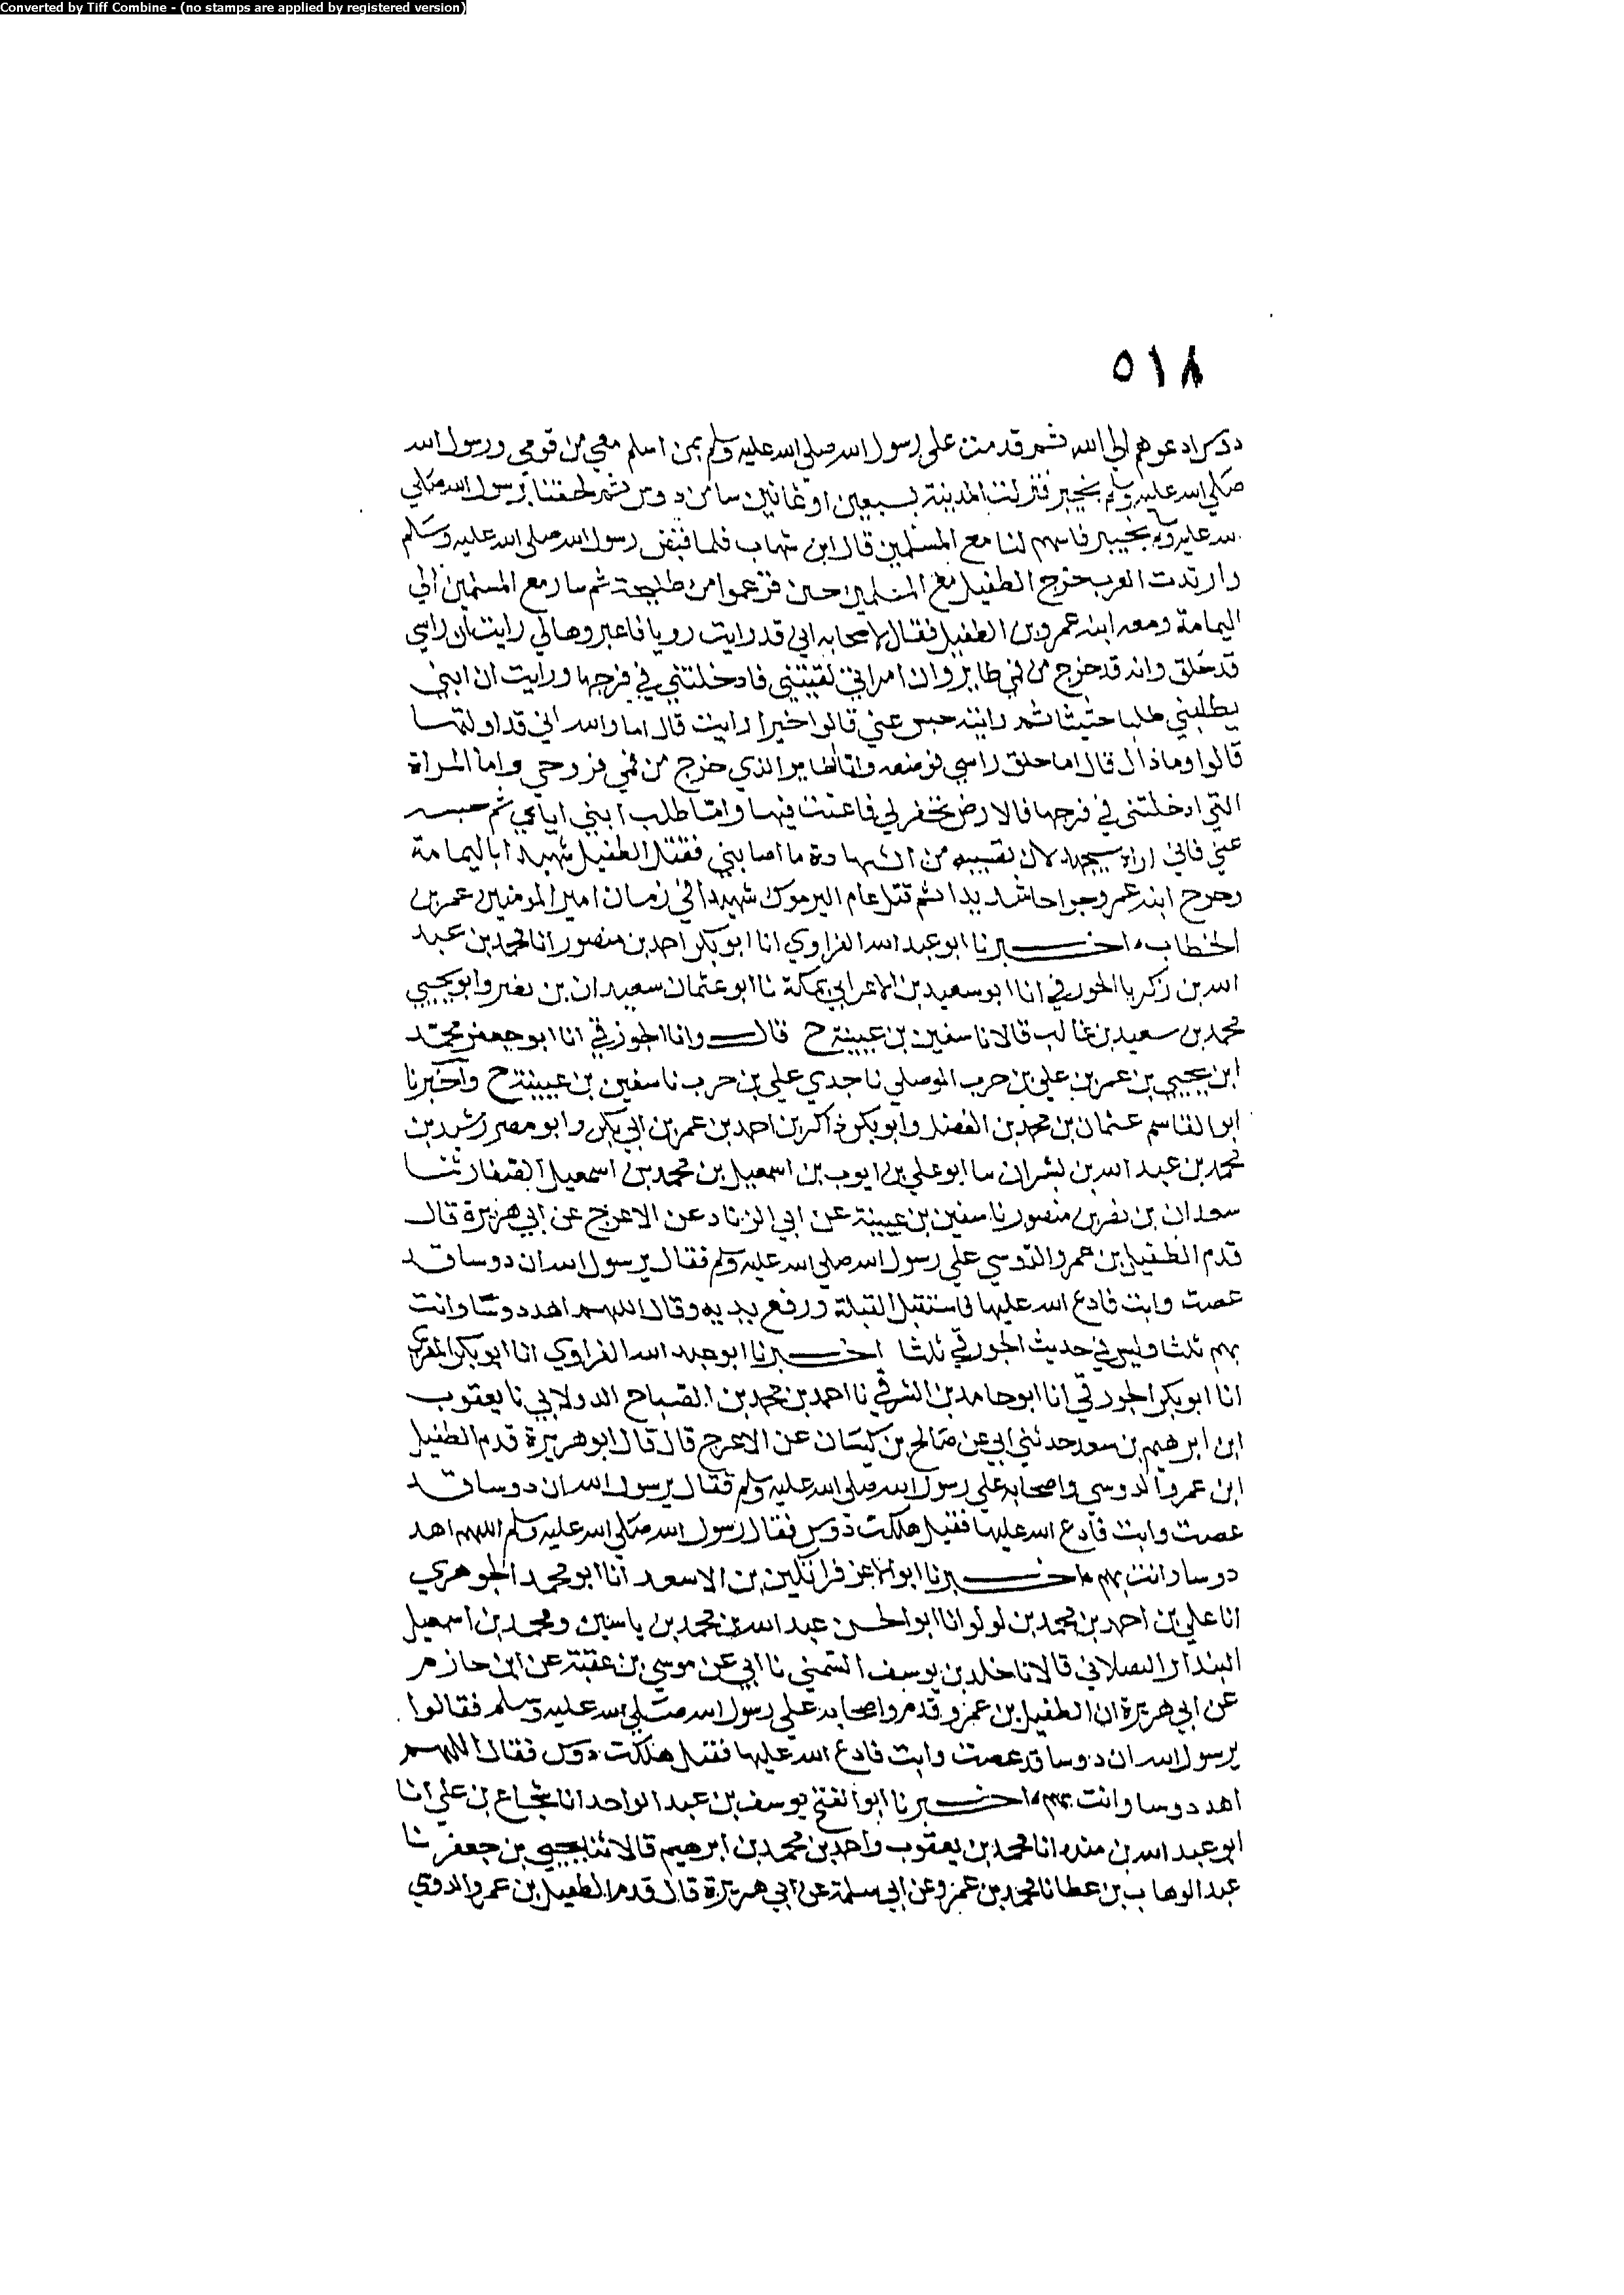 Converted by Tiff Combine - (no stamps are applied by registered version)
٥١٨
ادعوهم الي الله ثم قدمت علي رسول الله صلي الله عليه وسلم بمن اسلم معي من قومي ورسول الله
صلي الله عليه وسلم بخيبر فنزلت المدينة بسبعين او ثمانين من دوس ثم لحقنا برسول الله صلي
الله عليه وسلم بخيبر فاسهم لنا مع المسلمين قال ابن شهاب فلما قبض رسول الله صلي الله عليه وسلم
وارتدت العرب خرج الطفيل مع المسلمين حين فزعموا من طليحة ثم سار مع المسلمين الي
اليمامة ومعه ابنه عمرو بن الطفيل فقال لاصحابه اني قد رايت رويا فاعبروها لي رايت ان راسي
قد حلق وانه قد خرج من في طاير وان امراتي لقيتني فادخلتني في فرجها ورايت ان ابني
يطلبني طلبا حثيثا ثم رايته حبس عني قالوا خيرا رايت قال اما والله اني قد اولتها
قالوا وماذا ال قال اما حلق راسي فوضعه واما الطاير الذي خرج من فمي فروحي واما المراة
التي ادخلتني في فرجها فالارض تحفر لي فاغيب فيها واما طلب ابني اياي ثم حبسه
عني فاني اراه سيجهد لان يصيبه من الشهادة ما اصابني فقتل الطفيل شهيدا باليمامة
وجرح ابنه عمرو جراحا شديدا ثم قتل عام اليرموك شهيدا في زمان امير المومنين عمر بن
الخطاب اخبرنا ابو عبد الله الفراوي انا ابو بكر احمد بن منصور انا محمد بن عبد
الله بن زكريا الجوزقي انا ابو سعيد بن الاعرابي بمكة نا ابو عثمان سعيدان بن نصر وابو يحيي
محمد بن سعيد بن غالب قالا نا سفين بن عيينة ح قال وانا الجوزقي انا ابو جعفر محمد
ابن يحيي بن عمر بن علي بن حرب الموصلي نا جدي علي بن حرب نا سفين بن عيينة ح واخبرنا
ابو القاسم عثمان بن محمد بن الفضل وابو بكر ذاكر بن احمد بن عمر بن ابي بكر وابو مضر رشيد بن
محمد بن عبد الله بن بشران ما ابو علي بن ايوب بن اسمعيل بن محمد بن اسمعيل الصفار ثنا
سعدان بن نصر بن منصور نا سفين بن عيينة عن ابي الزناد عن الاعرج عن ابي هريرة قال
قدم الطفيل بن عمرو الدوسي علي رسول الله صلي الله عليه وسلم فقال يرسول الله ان دوسا قد
عصت وابت فادع الله عليها فاستقبل القبلة ورفع يديه وقال اللهم اهد دوسا وائت
بهم ثلثا وليس في حديث الجوزقي ثلثا اخبرنا ابو عبد الله الفراوي انا ابو بكر المغربي
انا ابو بكر الجوزقي انا ابو حامد بن الشرقي نا احمد بن محمد بن الصباح الدولابي نا يعقوب
ابن ابرهيم بن سعد حدثني ابي عن صالح بن كيسان عن الاعرج قال قال ابو هريرة قدم الطفيل
ابن عمرو الدوسي واصحابه علي رسول الله صلي الله عليه وسلم فقال يرسول الله ان دوسا قد
عصت وابت فادع الله عليها فقيل هلكت دوس فقال رسول الله صلي الله عليه وسلم اللهم اهد
دوسا وائت بهم اخبرنا ابو الاعز قراتكين بن الاسعد انا ابو محمد الجوهري
انا علي بن احمد بن محمد بن لولو انا ابو الحسن عبد الله بن محمد بن ياسين ومحمد بن اسمعيل
البندار البصلاني قالا نا خلد بن يوسف السمتي نا ابي عن موسي بن عقبة عن ابن حازم
عن ابي هريرة ان الطفيل بن عمرو قدم واصحابه علي رسول الله صلي الله عليه وسلم فقالوا
يرسول الله ان دوسا قد عصت وابت فادع الله عليها فقيل هلكت دوس فقال اللهم
اهد دوسا وائت بهم اخبرنا ابو الفتح يوسف بن عبد الواحد انا شجاع بن علي انا
ابو عبد الله بن منده انا محمد بن يعقوب واحمد بن محمد بن ابرهيم قالا ثنا يحيي بن جعفر نا
عبد الوهاب بن عطا نا محمد بن عمرو عن ابي سلمة عن ابي هريرة قال قدم الطفيل بن عمرو الدوسي